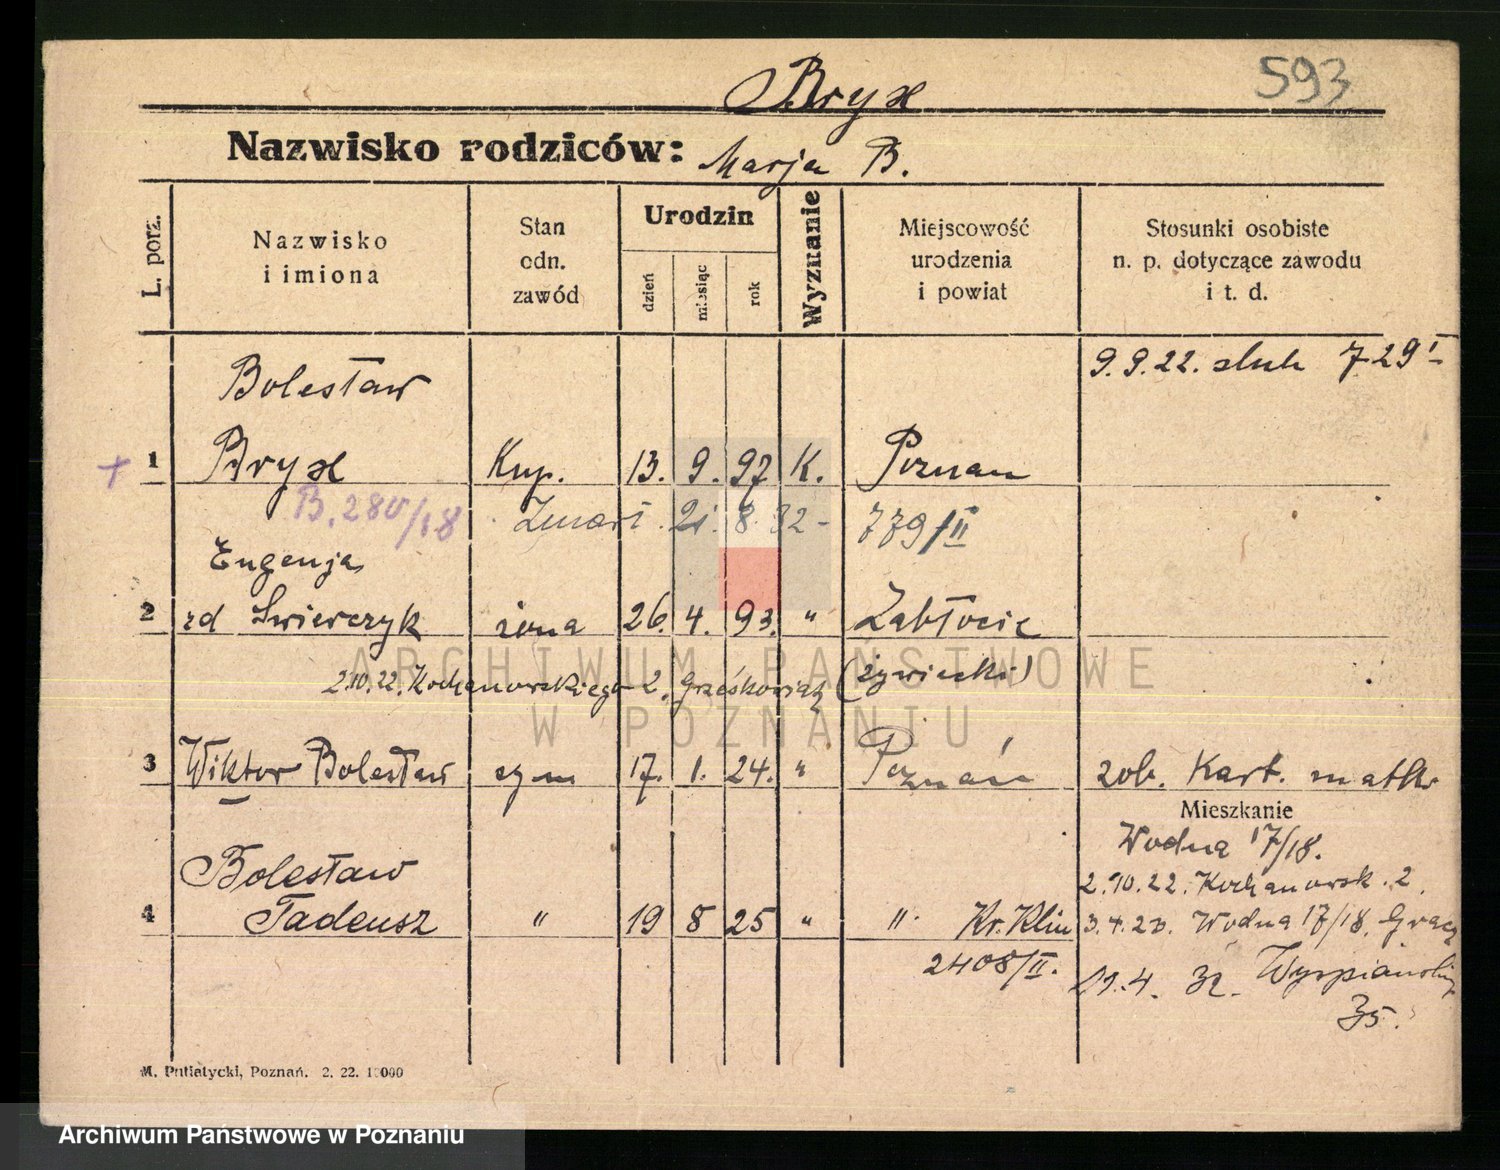 593
Bryx
Nazwisko rodziców: Marja B.
L. porz.
Nazwisko
i imiona
Stan
odn.
zawód
Urodzin
dzień
miesiąc
rok
Wyznanie
Miejscowość
urodzenia
i powiat
Stosunki osobiste
n. p. dotyczące zawodu
i t. d.
9.9.22. ślub 729 I
Bolesław
+ 1 Bryx Kup. 13. 9. 97 K. Poznań
B. 280/18 Zmarł 21. 8. 32 - 779/II
Eugenja
2 zd Swierczyk żona 26. 4. 93. " Zabłocie
2.10.22. Kochanowskiego 2. Grześkowiak (żywiecki)
3 Wiktor Bolesław syn 17. 1. 24. " Poznań zob. Kart. matki
Mieszkanie
Wodna 17/18.
Bolesław
2.10.22. Kochanowsk. 2.
4 Tadeusz " 19 8 25 " " Kr. Klin 3.4.23. Wodna 17/18.
2408/II.
4. 32. Wyspiańskiego
35.
M. Putiatycki, Poznań. 2. 22. 10000
ARCHIWUM PAŃSTWOWE
W POZNANIU
Archiwum Państwowe w Poznaniu